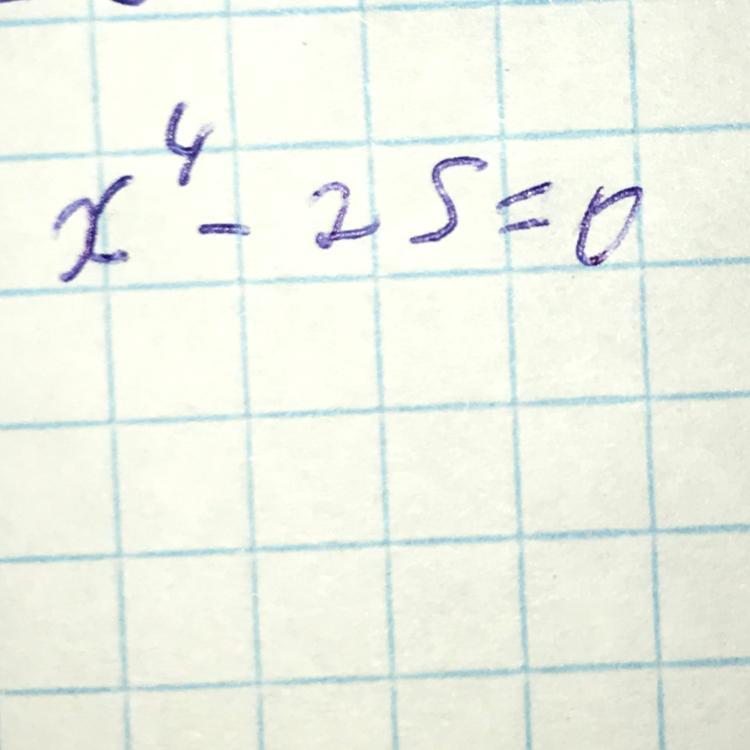 x⁴ - 25 = 0